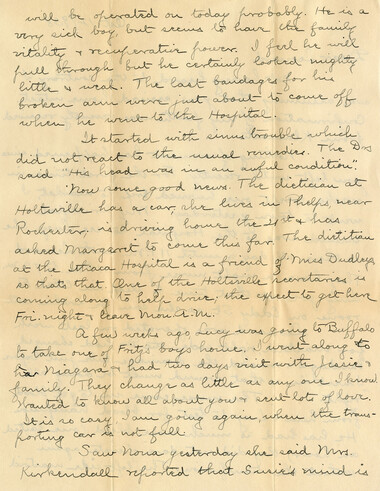 will be operated on today probably. He is a
very sick boy but seems to have the family
vitality & recuperative power. I feel he will
pull through but he certainly looked mighty
little & weak. The last bandages for his
broken arm were just about to come off
when he went to the Hospital.
It started with sinus trouble which
did not react to the usual remedies. The Drs
said "His head was in an awful condition".
Now some good news. The dietician at
Holtsville has a car, she lives in Phelps, near
Rochester; is driving home the 21st & has
asked Margaret to come this far. The dietitian
at the Ithaca Hospital is a friend of Miss Dudleys
so thats that. One of the Holtsville secretaries is
coming along to help drive; the expect to get here
Fri. night & leave Mon. A.M.
A few weeks ago Lucy was going to Buffalo
to take one of Fritz's boys home. I went along to
Niagara & had two days visit with Jessie &
family. They change as little as any one I know
Wanted to know all about you & sent lots of love.
It is so easy I am going again when the trans-
porting car is not full.
Saw Nona yesterday she said Mrs.
Kirkendall reported that Susie's mind is